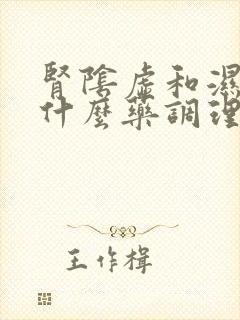 腎陰虛和濕
什麼藥調理
王作楫